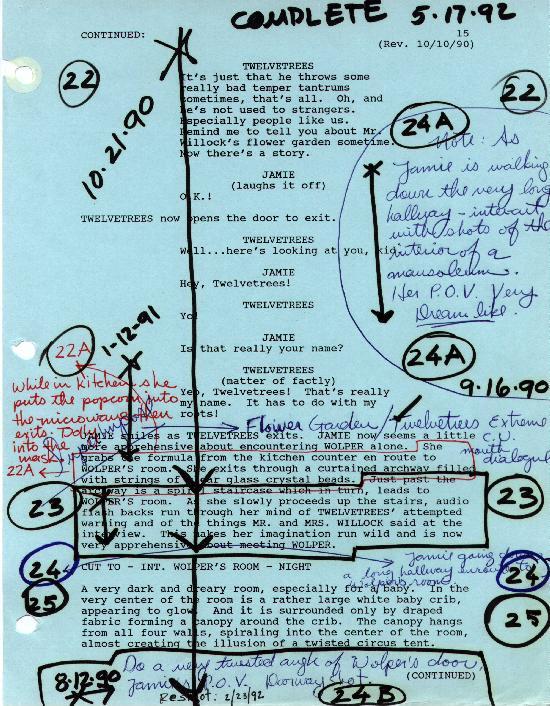 COMPLETE 5.17.92
CONTINUED:
15
(Rev. 10/10/90)
22
22
10.21.90
TWELVETREES
It's just that he throws some
really bad temper tantrums
sometimes, that's all. Oh, and
he's not used to strangers.
Especially people like us.
Remind me to tell you about Mr.
Willock's flower garden sometime.
Now there's a story.
JAMIE
(laughs it off)
O.K.!
TWELVETREES now opens the door to exit.
TWELVETREES
Well...here's looking at you, kid.
JAMIE
Hey, Twelvetrees!
TWELVETREES
Yo!
JAMIE
Is that really your name?
TWELVETREES
(matter of factly)
Yep, Twelvetrees! That's really
my name. It has to do with my
roots!
24A
Note: As
Jamie is walking
down the very long
hallway - intercut
with shots of the
interior of a
mausoleum.
Her P.O.V. Very
Dream like.
24A
9.16.90
1-12-91
22A
While in Kitchen, she
puts the popcorn into
the microwave then
exits.
into the
22A
Flower Garden/Twelvetrees Extreme
C.U.
mouth
dialogue
smiles as TWELVETREES exits. JAMIE now seems a little
more apprehensive about encountering WOLPER alone. She
grabs the formula from the kitchen counter en route to
WOLPER'S room. She exits through a curtained archway filled
with strings of clear glass crystal beads. Just past the
archway is a spiral staircase which in turn, leads to
WOLPER'S room. As she slowly proceeds up the stairs, audio
flash backs run through her mind of TWELVETREES' attempted
warning and of the things MR. and MRS. WILLOCK said at the
interview. This makes her imagination run wild and is now
very apprehensive about meeting WOLPER.
23
23
Jamie going down
a long hallway enroute to
Wolper's room
24
24
CUT TO - INT. WOLPER'S ROOM - NIGHT
25
25
A very dark and dreary room, especially for a baby. In the
very center of the room is a rather large white baby crib,
appearing to glow. And it is surrounded only by draped
fabric forming a canopy around the crib. The canopy hangs
from all four walls, spiraling into the center of the room,
almost creating the illusion of a twisted circus tent.
Do a very twisted angle of Wolper's door,
Jamie's P.O.V. Doorway shot.
(CONTINUED)
8.12.90
Reshot: 2/23/92
24B